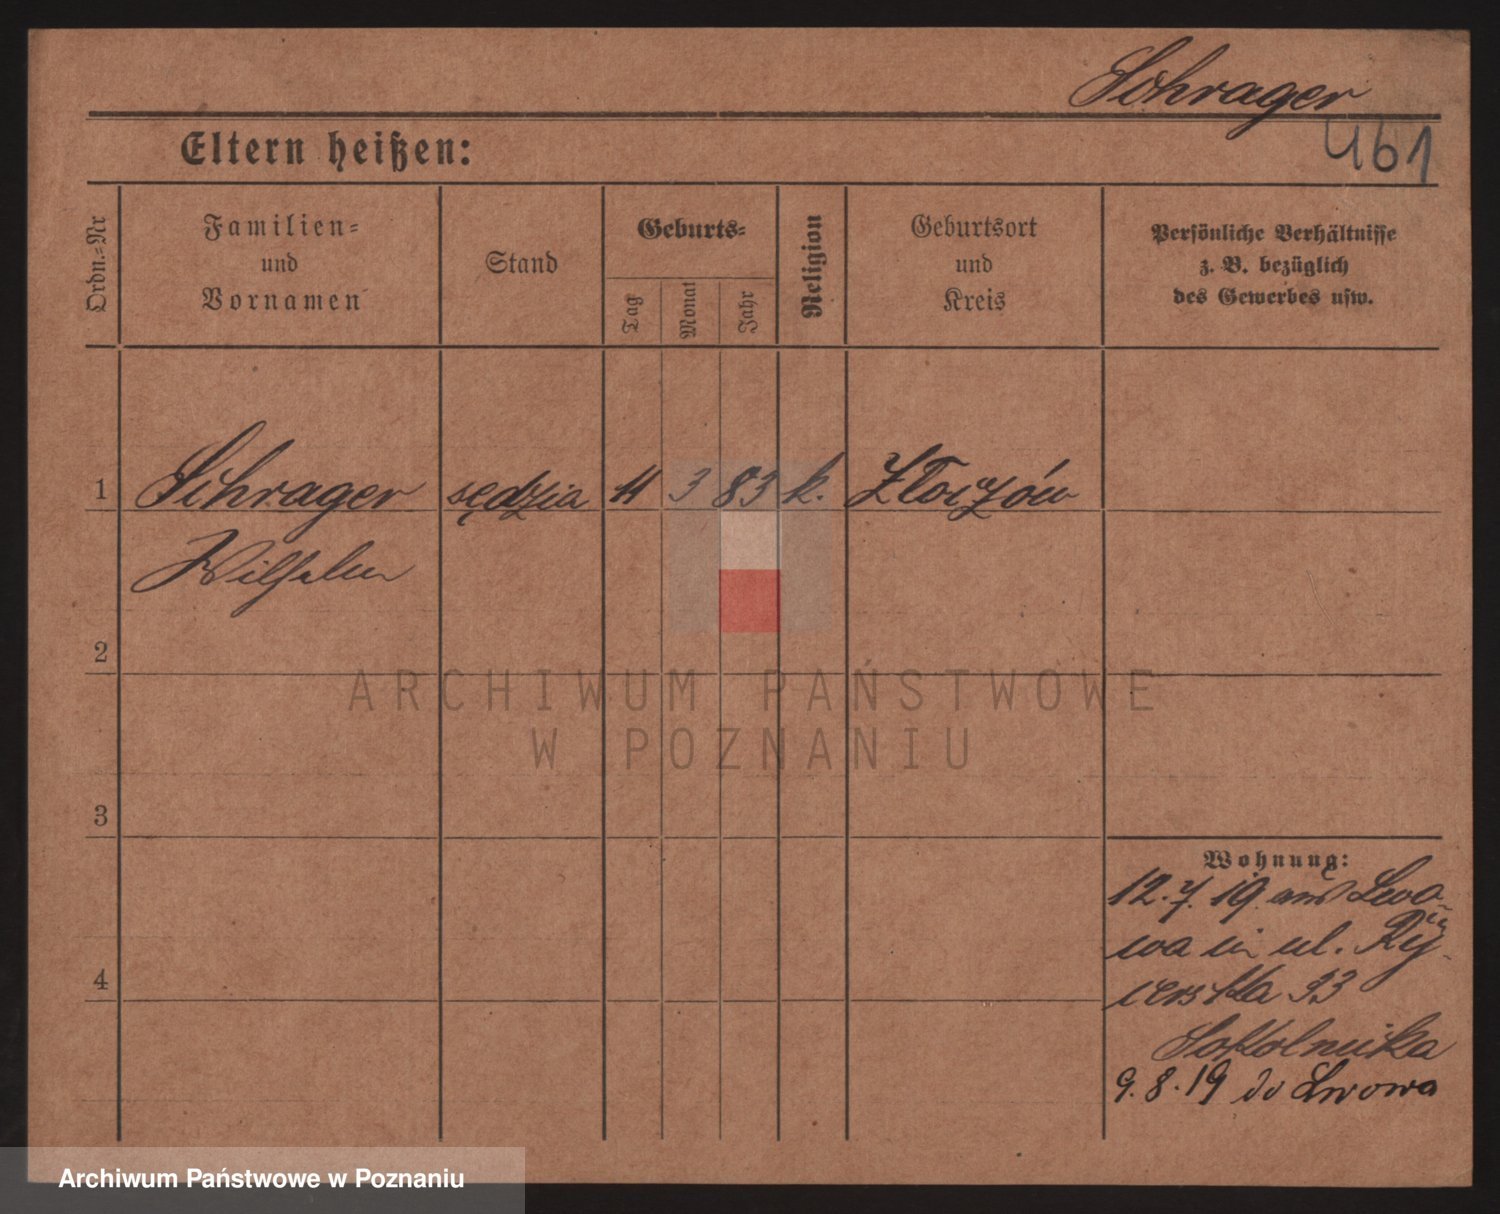 Schrager
461
Eltern heißen:
Ordn.=Nr
Familien=
und
Vornamen
Stand
Geburts=
Tag
Monat
Jahr
Religion
Geburtsort
und
Kreis
Persönliche Verhältnisse
z. B. bezüglich
des Gewerbes usw.
1 Schrager sędzia 11 3 83 k. Złoczów
Wilhelm
2
ARCHIWUM PAŃSTWOWE
W POZNANIU
3
Wohnung:
12.7.19 aus Lwo-
wa in ul. Ry-
cerska 33
4
Sokolnicka
9.8.19 do Lwowa
Archiwum Państwowe w Poznaniu